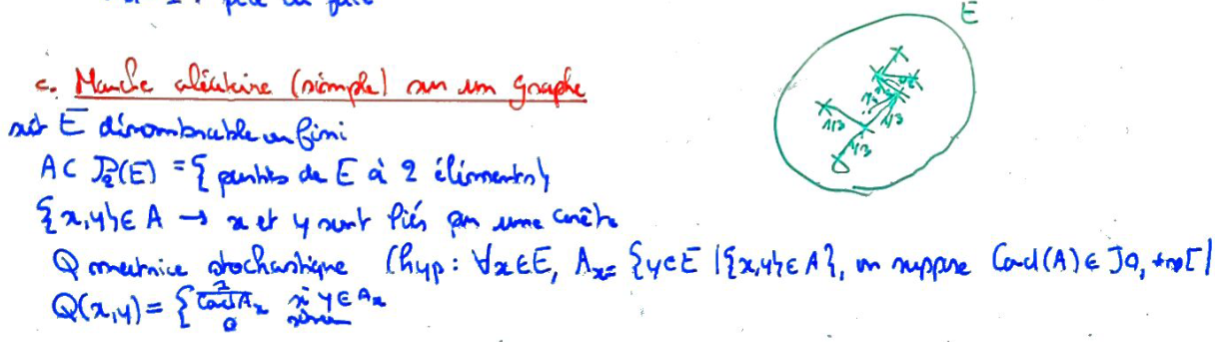 E
c. Marche aléatoire (simple) sur un graphe
1/3 1/3 1/3
soit E dénombrable ou fini
A ⊂ P₂(E) = { parties de E à 2 éléments}
{x,y} ∈ A → x et y sont liés par une arête
Q matrice stochastique (hyp: ∀x∈E, Aₓ= {y∈E | {x,y} ∈ A}, on suppose Card(A) ∈ ]0, +∞[)
Q(x,y) = { 1/Card Aₓ si y ∈ Aₓ
0 sinon